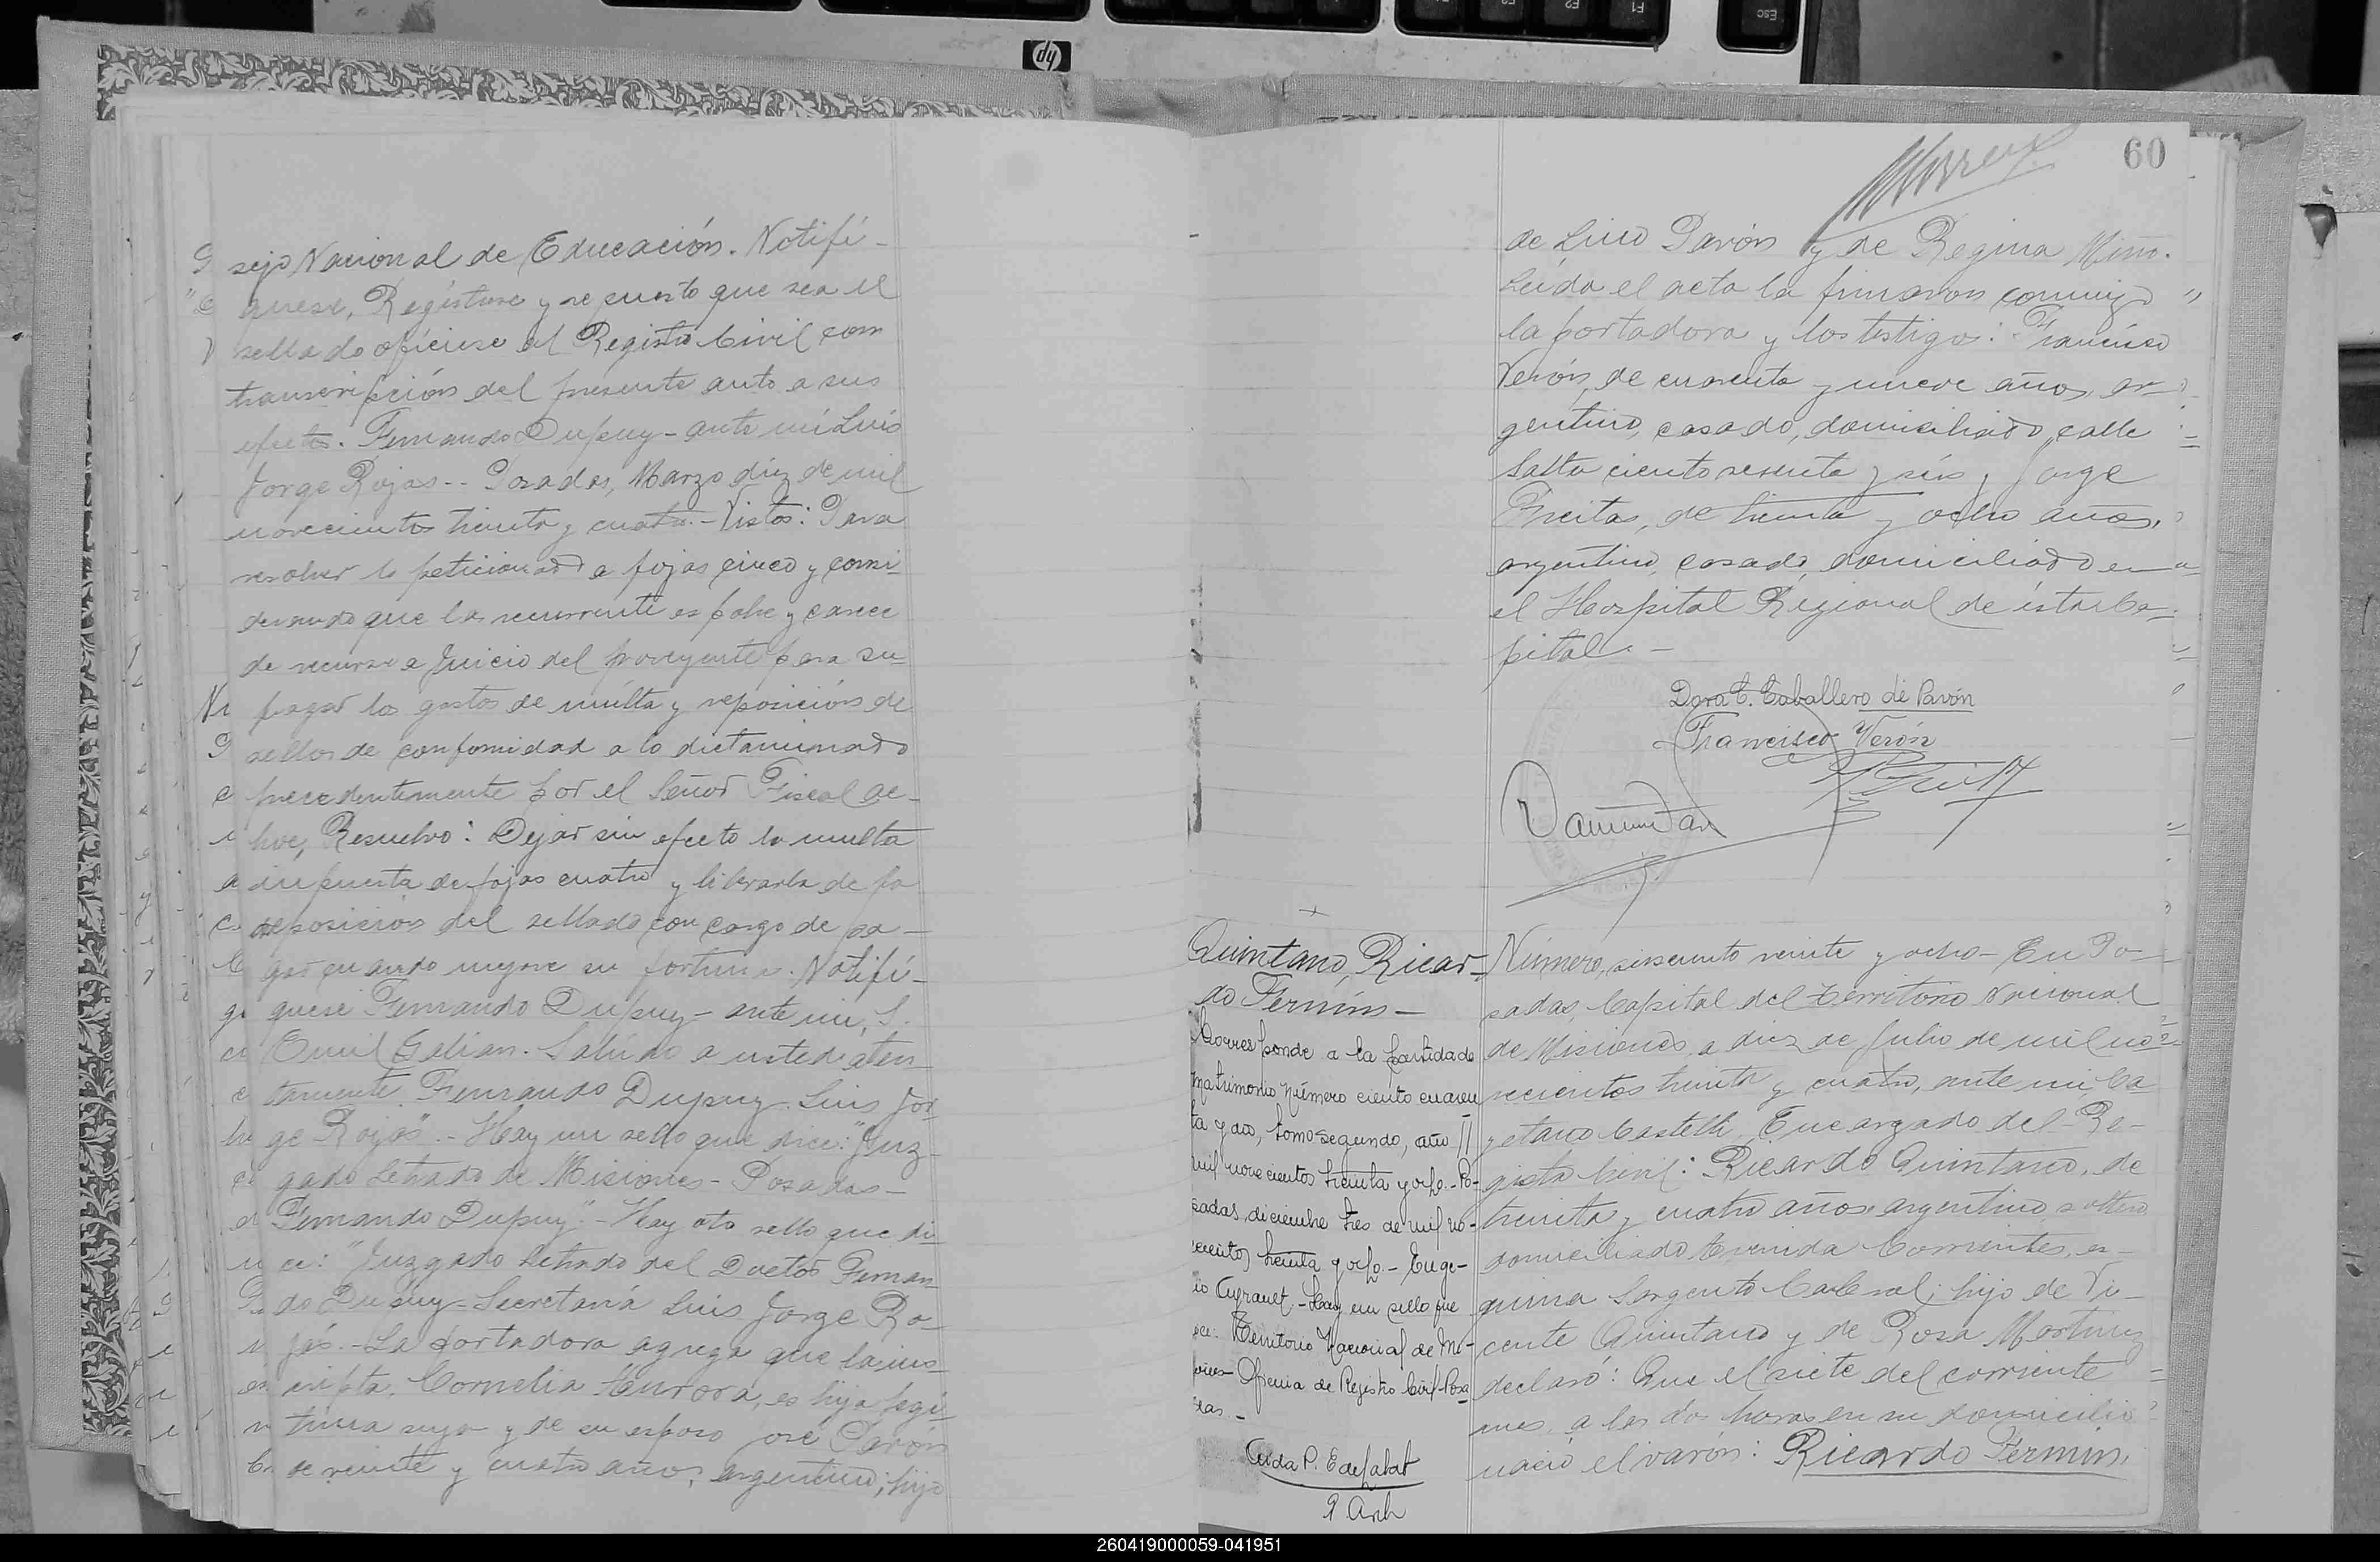 sejo Nacional de Educación. Notifí-
quese, Regístrese y repuesto que sea el
sellado ofíciese al Registro Civil con
transcripción del presente auto a sus
efectos. Fernando Dupuy - ante mí Luis
Jorge Rojas -- Posadas, Marzo diez de mil
novecientos treinta y cuatro. - Vistos: Para
resolver lo peticionado a fojas cinco y consi-
derando que la recurrente es pobre y carece
de recurso a Juicio del proveyente para su-
fragar los gastos de multa y reposición de
sellos de conformidad a lo dictaminado
precedentemente por el Señor Fiscal ac-
hoc, Resuelvo: Dejar sin efecto la multa
impuesta de fojas cuatro y librarla de la
reposición del sellado con cargo de pa-
gar cuando mejore su fortuna. Notifí-
quese Fernando Dupuy - ante mi, S.
Galian. Saludo a usted aten-
tamente. Fernando Dupuy. Luis Jor-
ge Rojas". - Hay un sello que dice: "Juz-
gado Letrado de Misiones - Posadas -
Fernando Dupuy". - Hay otro sello que di-
ce: "Juzgado Letrado del Doctor Fernan-
do Dupuy = Secretaría Luis Jorge Ro-
jas. - La portadora agrega que la ins-
cripta, Cornelia Aurora, es hija legí-
tima suya y de su esposo José Pavón
de veinte y cuatro años, argentino; hijo
60
de Lino Pavón y de Regina Miño.
Leída el acta la firmaron conmigo
la portadora y los testigos: Francisco
Verón, de cuarenta y nueve años, ar-
gentino, casado, domiciliado calle
Salta ciento sesenta y seis y Jorge
Freitas, de treinta y ocho años,
argentino, casado, domiciliado en
el Hospital Regional de ésta Ca-
pital. -
Dora C. Caballero de Pavón
Francisco Verón
Quintano, Ricar-
do Fermín -
Corresponde a la partida de
matrimonio número ciento cuaren
ta y dos, tomo segundo, año
mil novecientos treinta y ocho. - Po-
sadas, diciembre tres de mil no-
vecientos treinta y ocho. - Euge-
nio - Hay un sello que
dice: Territorio Nacional de Mi-
siones - Oficina de Registro Civil - Posa
das. -
Número, seiscientos veinte y ocho - En Po-
sadas, Capital del Territorio Nacional
de Misiones, a diez de Julio de mil no-
vecientos treinta y cuatro, ante mi, Ca-
yetano Castelli, Encargado del Re-
gistro Civil: Ricardo Quintano, de
treinta y cuatro años, argentino, soltero,
domiciliado Avenida Corrientes, es-
quina Sargento Cabral; hijo de Vi-
cente Quintano y de Rosa Martinez
declaró: Que el siete del corriente
mes, a las dos horas en su domicilio
nació el varón: Ricardo Fermín,
260419000059-041951